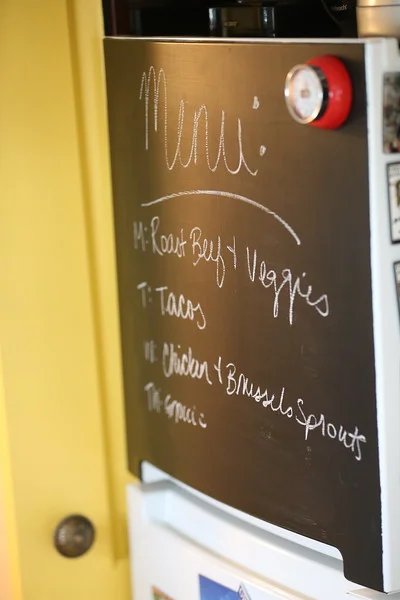 Menu:
M: Roast Beef + Veggies
T: Tacos
W: Chicken + Brussels Sprouts
TH: